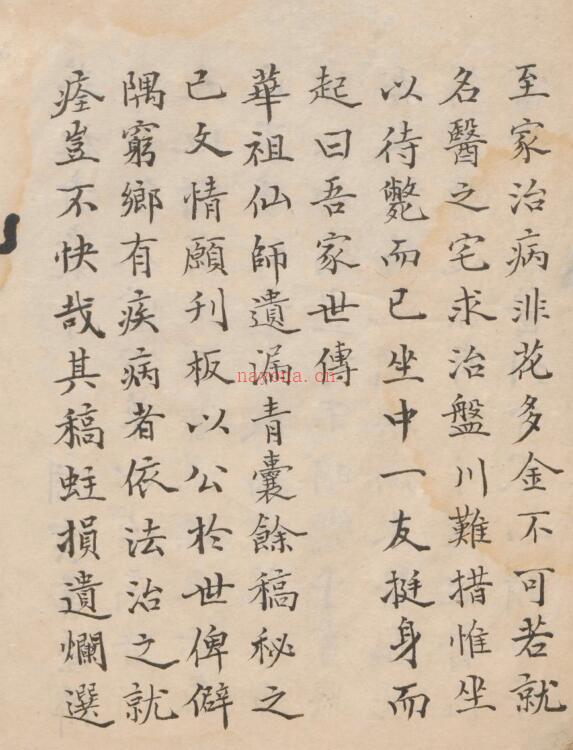 至家治病非花多金不可若就
名醫之宅求治盤川難措惟坐
以待斃而已坐中一友挺身而
起曰吾家世傳
華祖仙師遺漏青囊餘稿秘之
已文情願刋板以公於世俾僻
隅窮鄉有疾病者依法治之就
痊豈不快哉其稿蛀損遺爛選